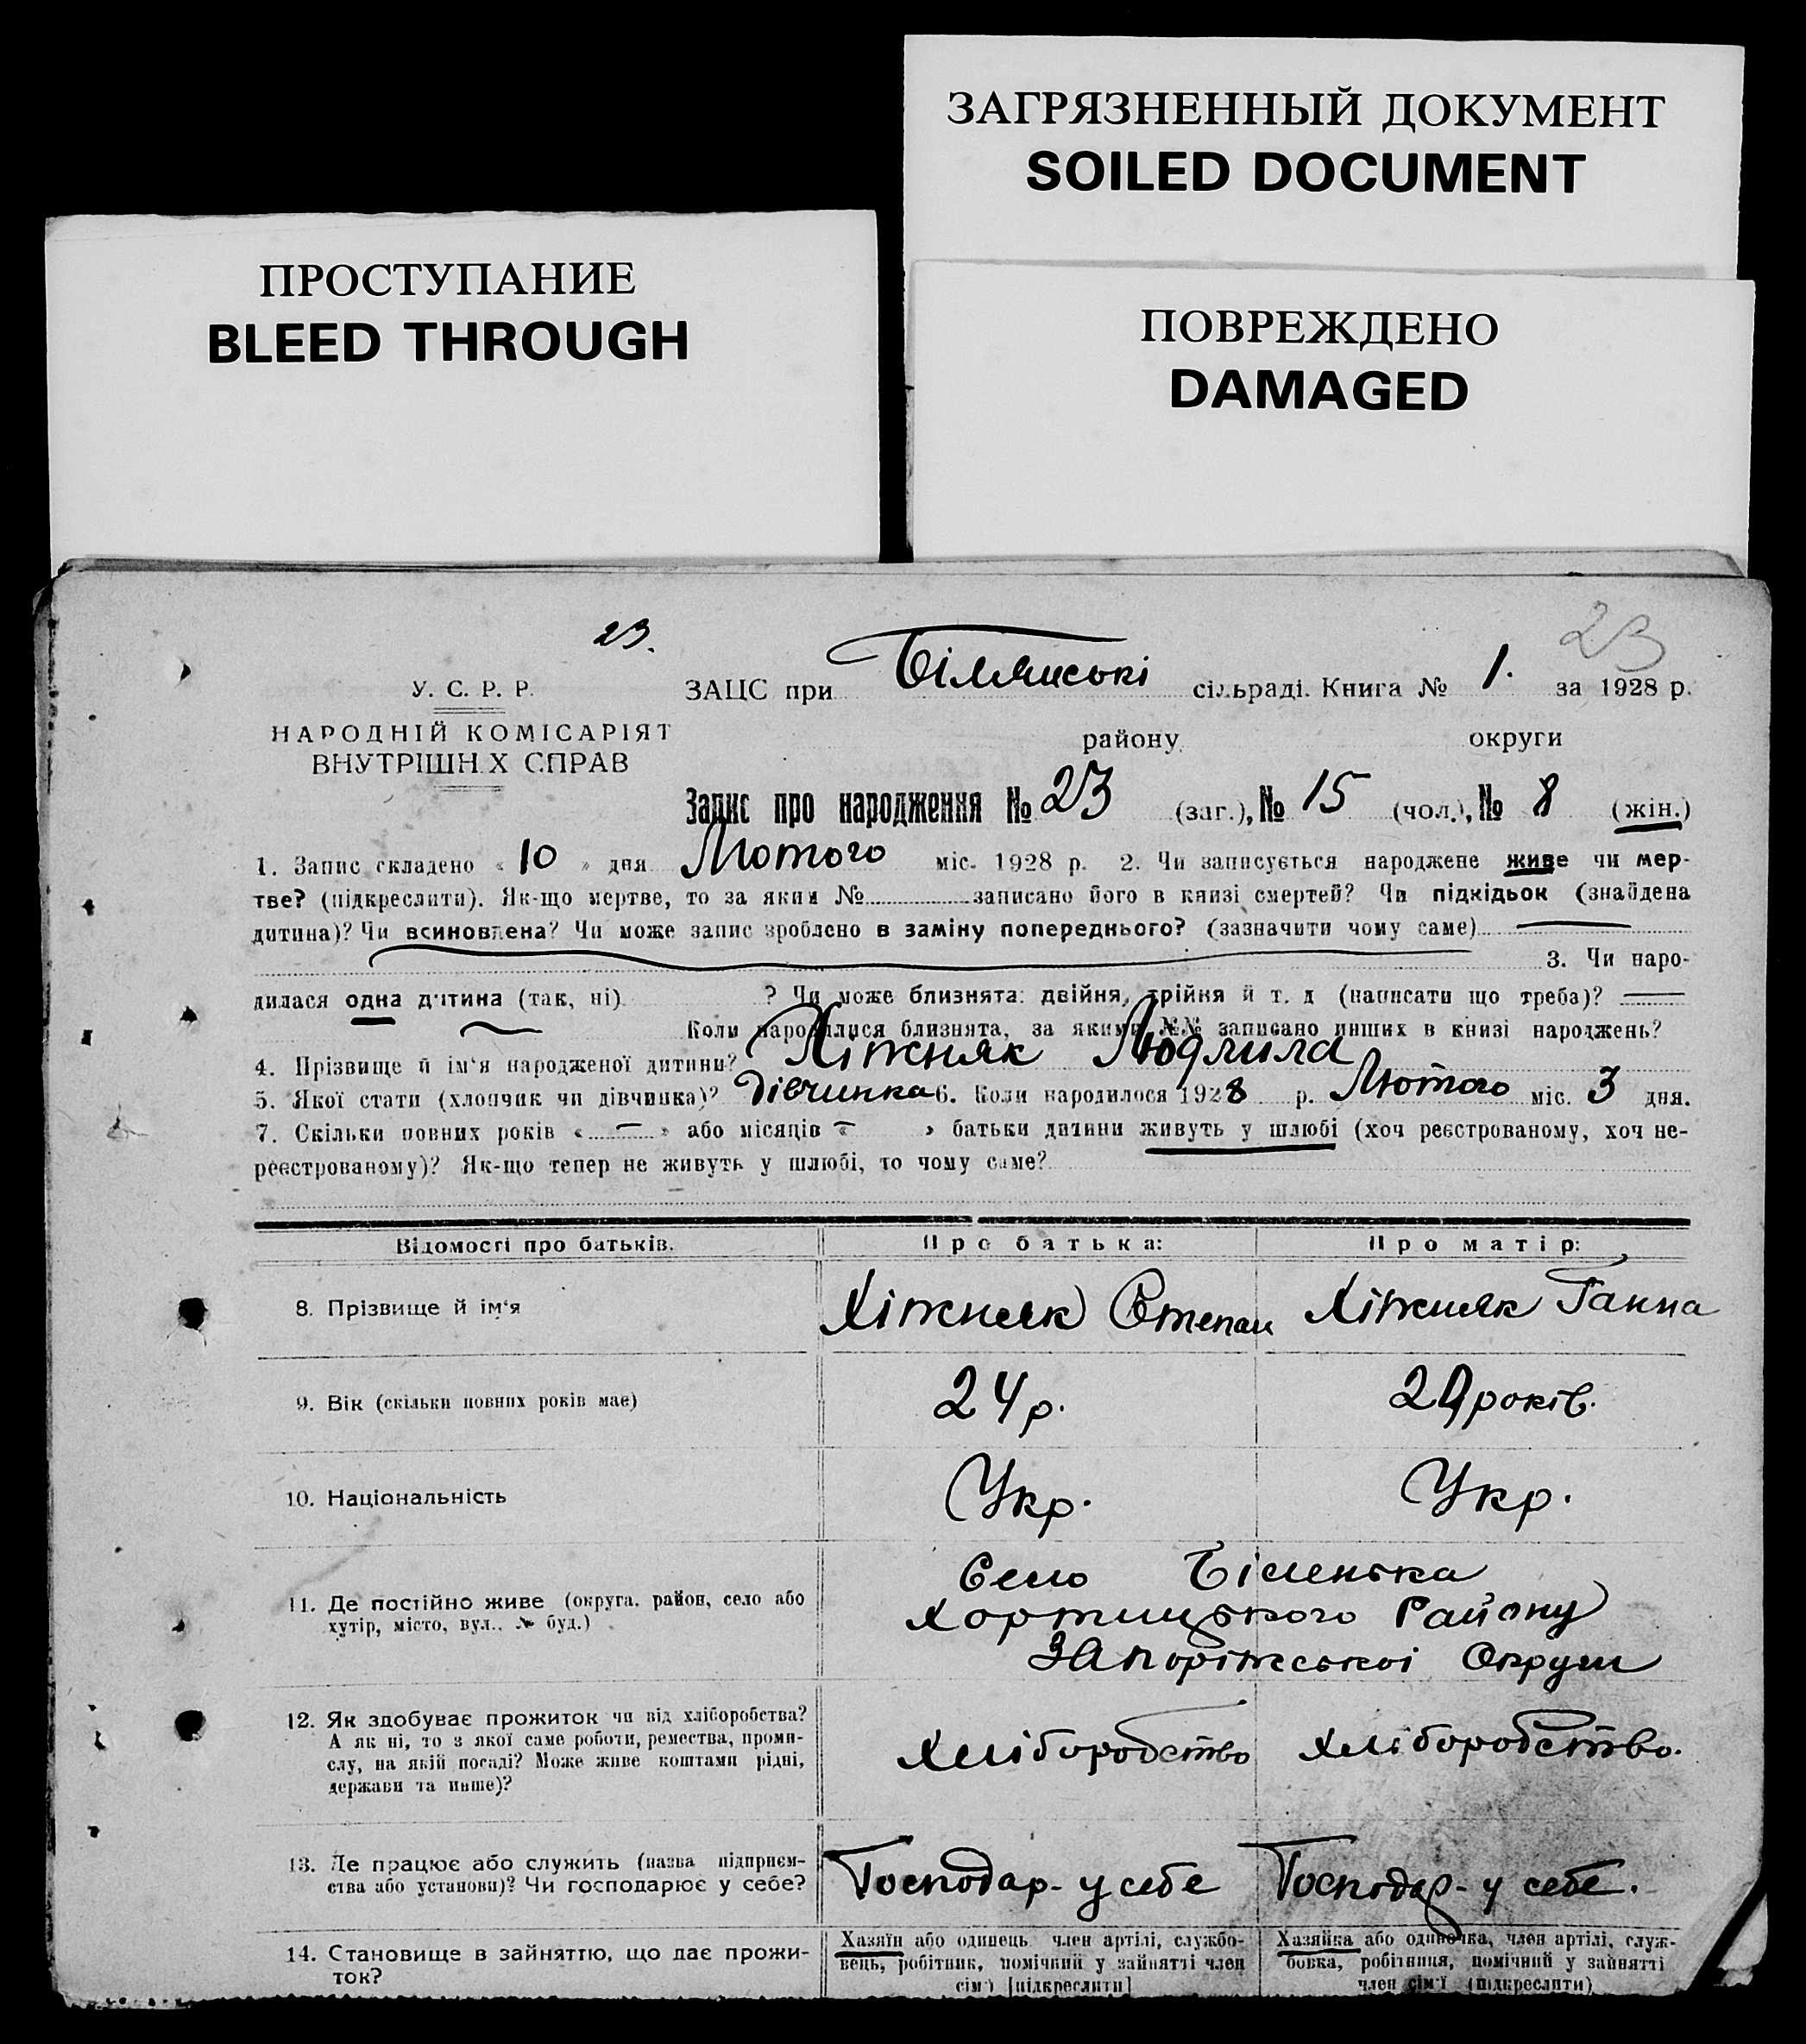 ЗАГРЯЗНЕННЫЙ ДОКУМЕНТ
SOILED DOCUMENT
ПРОСТУПАНИЕ
BLEED THROUGH
ПОВРЕЖДЕНО
DAMAGED
23. 23
У. С. Р. Р.
НАРОДНІЙ КОМІСАРІЯТ
ВНУТРІШН.Х СПРАВ
ЗАЦС при Білянські сільраді. Книга № 1. за 1928 р.
району округи
Запис про народження № 23 (заг.), № 15 (чол.), № 8 (жін.)
1. Запис складено « 10 » дня Лютого міс. 1928 р. 2. Чи записується народжене живе чи мер-
тве? (підкреслити). Як-що мертве, то за яким № записано його в книзі смертей? Чи підкідьок (знайдена
дитина)? Чи всиновлена? Чи може запис зроблено в заміну попереднього? (зазначити чому саме)
3. Чи наро-
дилася одна дитина (так, ні) ? Чи може близнята: двійня, трійня й т. д (написати що треба)? —
Коли народилися близнята, за якими №№ записано инших в книзі народжень?
4. Прізвище й ім'я народженої дитини? Хіжняк Людмила
5. Якої стати (хлопчик чи дівчинка)? Дівчинка 6. Коли народилося 1928 р. Лютого міс. 3 дня.
7. Скільки повних років « — » або місяців « — » батьки дитини живуть у шлюбі (хоч реєстрованому, хоч не-
реєстрованому)? Як-що тепер не живуть у шлюбі, то чому саме?
Відомості про батьків. Про батька: Про матір:
8. Прізвище й ім'я Хіжняк Степан Хіжняк Ганна
9. Вік (скільки повних років має) 24 р. років.
10. Національність Укр. Укр.
11. Де постійно живе (округа, район, село або
хутір, місто, вул., № буд.)
Село Біленька
Хортицького Району
Запоріжської Округи
12. Як здобуває прожиток чи від хліборобства?
А як ні, то з якої саме роботи, ремества, проми-
слу, на якій посаді? Може живе коштами рідні,
держави та инше)?
Хлібородство Хлібородство.
13. Де працює або служить (назва підприєм-
ства або установи)? Чи господарює у себе?
Господар- у себе Господар- у себе.
14. Становище в зайняттю, що дає прожи-
ток?
Хазяїн або одинець член артілі, службо-
вець, робітник, помічний у зайнятті член
сім'ї [підкреслити]
Хазяйка або одиночка, член артілі, служ-
бовка, робітниця, помічний у зайнятті
член сім'ї (підкреслити)